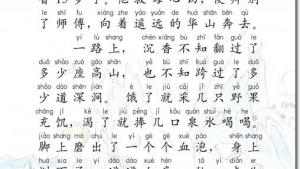 le shī fu xiàng zhe yáo yuǎn de huà shān bēn qù
了师傅，向着遥远的华山奔去。
yí lù shàng chén xiāng bù zhī fān guò le
一路上，沉香不知翻过了
duō shǎo zuò gāo shān yě bù zhī kuà guò le duō
多少座高山，也不知跨过了多
shǎo dào shēn jiàn è le jiù cǎi jǐ zhī yě guǒ
少道深涧。饿了就采几只野果
chōng jī kě le jiù pěng jǐ kǒu quán shuǐ hē he
充饥，渴了就捧几口泉水喝喝
jiǎo shang mó chū le yí gè gè xuè pào shēn shang
脚上磨出了一个个血泡，身上